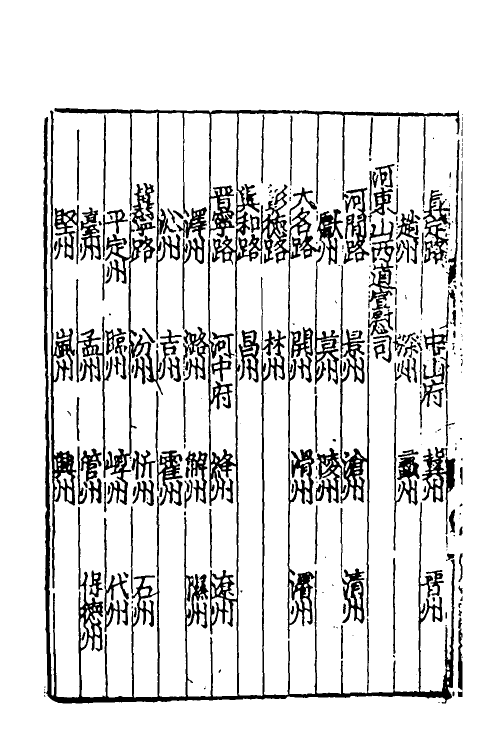 真定路 中山府 冀州 晉州
趙州 深州 蠡州
河東山西道宣慰司
河間路 景州 滄州 清州
獻州 莫州 陵州
大名路 開州 滑州 濬州
彰德路 林州
興和路 昌州
晉寧路 河中府 絳州 遼州
澤州 潞州 解州 隰州
沁州 吉州 霍州
冀寧路 汾州 忻州 石州
平定州 臨州 崞州 代州
臺州 孟州 管州 保德州
堅州 嵐州 興州